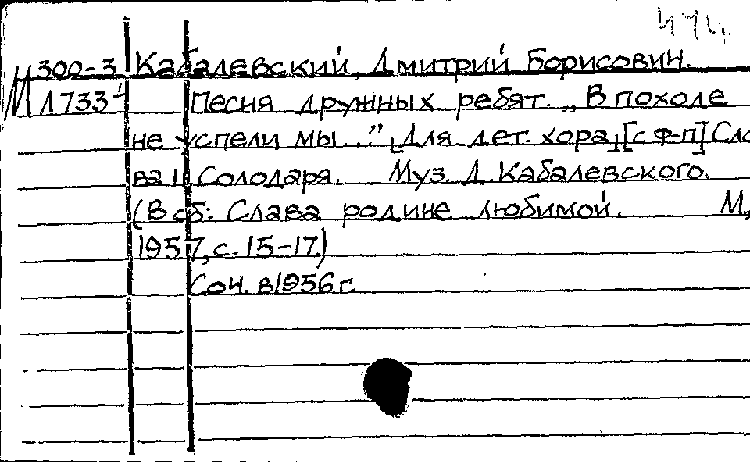 474
М 300-3 Кабалевский, Дмитрий Борисович.
1733 Песня дружных ребят. „В походе
не успели мы..." [Для дет. хора] [с ф-п] Сло
ва Ц. Солодаря. Муз. Д. Кабалевского.
(В сб: Слава родине любимой. М,
1957, с. 15-17.)
Соч. в 1956 г.